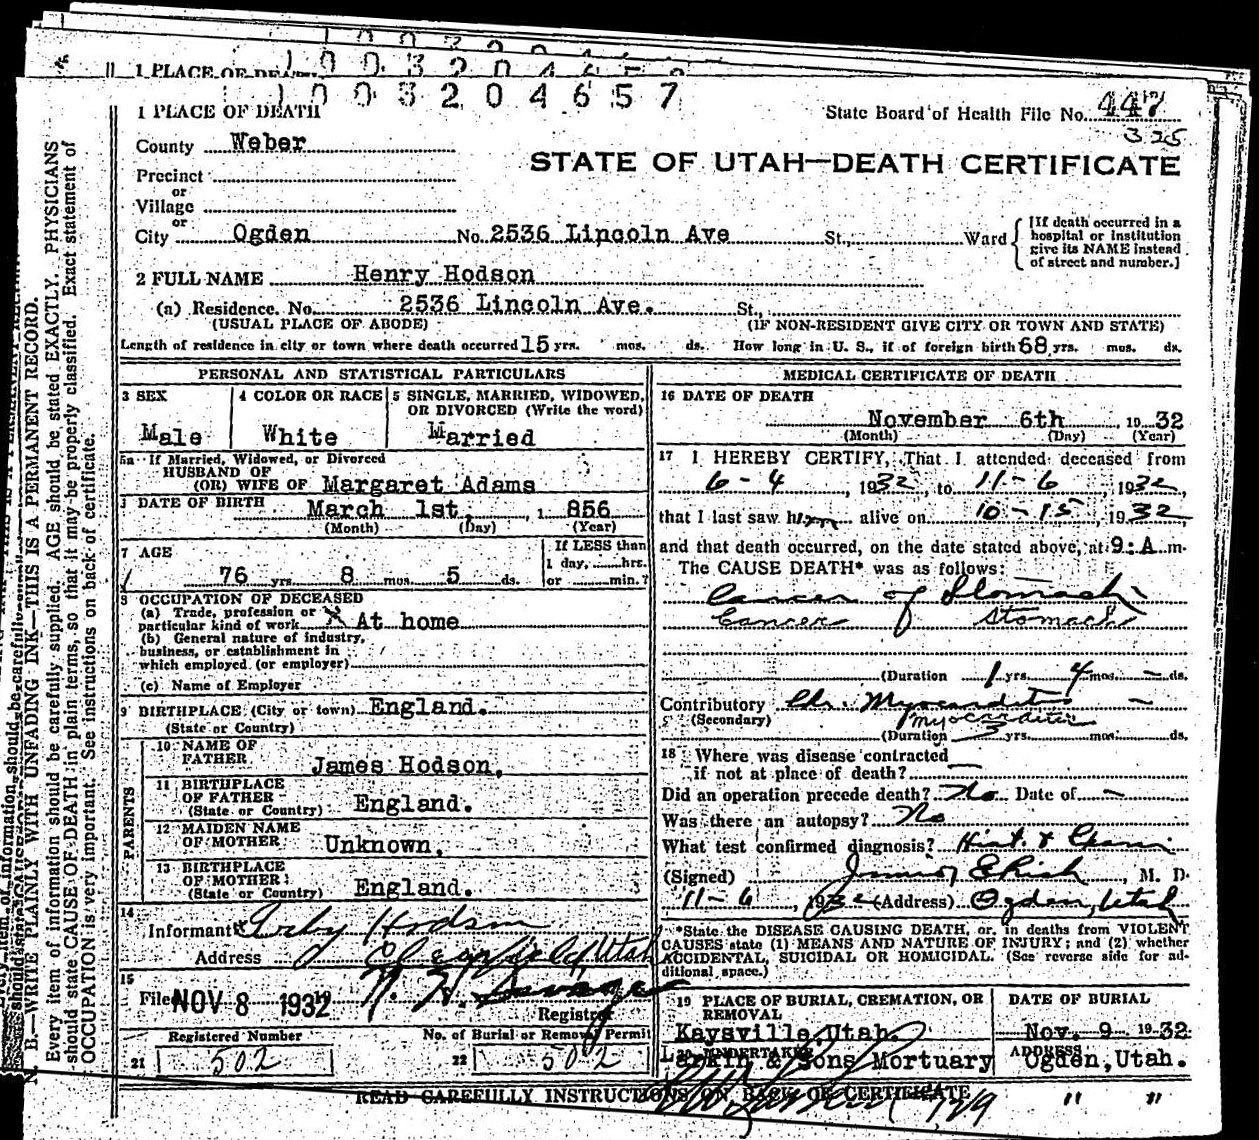 1 PLACE OF DEATH
1003204657
State Board of Health File No. 447
325
County Weber
STATE OF UTAH—DEATH CERTIFICATE
Precinct
or
Village
or
City Ogden No. 2536 Lincoln Ave St., Ward
[If death occurred in a hospital or institution give its NAME instead of street and number.]
2 FULL NAME Henry Hodson
(a) Residence. No. 2536 Lincoln Ave. St.,
(USUAL PLACE OF ABODE) (IF NON-RESIDENT GIVE CITY OR TOWN AND STATE)
Length of residence in city or town where death occurred 15 yrs. mos. ds. How long in U. S., if of foreign birth 68 yrs. mos. ds.
PERSONAL AND STATISTICAL PARTICULARS
3 SEX 4 COLOR OR RACE 5 SINGLE, MARRIED, WIDOWED, OR DIVORCED (Write the word)
Male White Married
5a If Married, Widowed, or Divorced
HUSBAND OF
(OR) WIFE OF Margaret Adams
DATE OF BIRTH March 1st, 1 856
(Month) (Day) (Year)
7 AGE If LESS than
1 day, hrs.
76 yrs 8 mos. 5 ds. or min.?
8 OCCUPATION OF DECEASED
(a) Trade, profession or
particular kind of work X At home
(b) General nature of industry,
business, or establishment in
which employed (or employer)
(c) Name of Employer
9 BIRTHPLACE (City or town) England.
(State or Country)
PARENTS
10 NAME OF
FATHER James Hodson.
11 BIRTHPLACE
OF FATHER England.
(State or Country)
12 MAIDEN NAME
OF MOTHER Unknown.
13 BIRTHPLACE
OF MOTHER
(State or Country) England.
14
Informant Hodson
Address Clearfield Utah
15
Filed NOV 8 1932
Registrar
Registered Number No. of Burial or Removal Permit
21 502 22 502
MEDICAL CERTIFICATE OF DEATH
16 DATE OF DEATH
November 6th, 19 32
(Month) (Day) (Year)
17 I HEREBY CERTIFY, That I attended deceased from
6-4, 1932, to 11-6, 1932,
that I last saw him alive on 10-15, 1932,
and that death occurred, on the date stated above, at 9:A m.
The CAUSE DEATH* was as follows:
Cancer of Stomach
Cancer of Stomach
(Duration 1 yrs. 4 mos. — ds.
Contributory Chr. Myocarditis —
(Secondary) myocarditis
(Duration yrs. mos. ds.
18 Where was disease contracted
if not at place of death? —
Did an operation precede death? No Date of —
Was there an autopsy? No
What test confirmed diagnosis? Hist. &
(Signed) Junior E Rich, M. D.
11-6, 1932 (Address) Ogden, Utah
*State the DISEASE CAUSING DEATH, or, in deaths from VIOLENT
CAUSES state (1) MEANS AND NATURE OF INJURY; and (2) whether
ACCIDENTAL, SUICIDAL OR HOMICIDAL. (See reverse side for ad-
ditional space.)
19 PLACE OF BURIAL, CREMATION, OR REMOVAL DATE OF BURIAL
Kaysville, Utah. Nov. 9 19 32
20 UNDERTAKER ADDRESS
Larkin & Sons Mortuary Ogden, Utah.
READ CAREFULLY INSTRUCTIONS ON BACK OF CERTIFICATE
" "
N. B.—WRITE PLAINLY WITH UNFADING INK—THIS IS A PERMANENT RECORD.
Every item of information should be carefully supplied. AGE should be stated EXACTLY. PHYSICIANS
should state CAUSE OF DEATH in plain terms, so that it may be properly classified. Exact statement of
OCCUPATION is very important. See instructions on back of certificate.